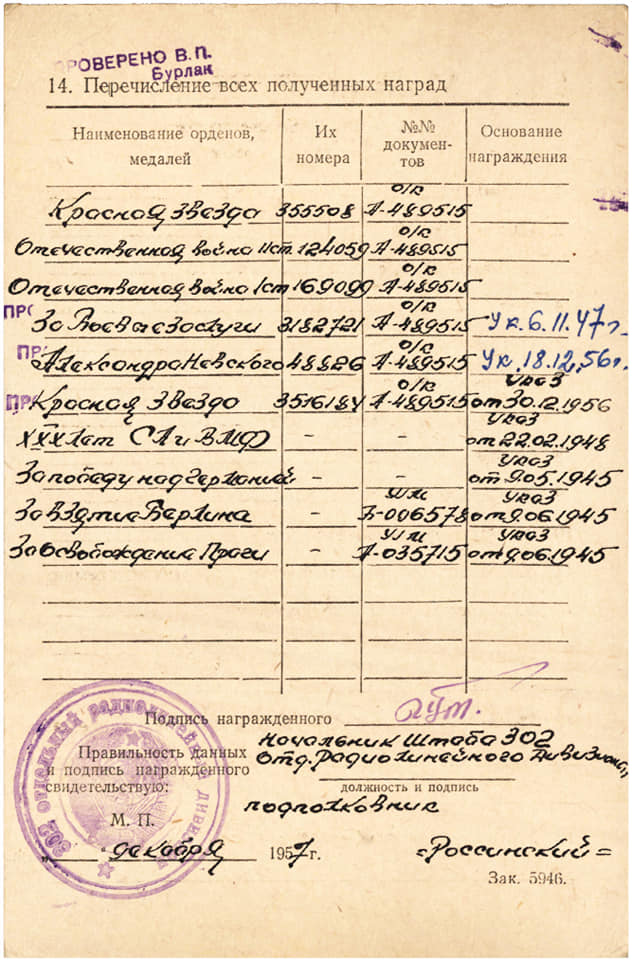 ПРОВЕРЕНО В.П.
Бурлак
14. Перечисление всех полученных наград
Наименование орденов, медалей Их номера №№ документов Основание награждения
Красная Звезда 355508 о/к А-489515
Отечественная война II ст. 124059 о/к А-489515
Отечественная война I ст 169099 о/к А-489515
ПРО За Боевые Заслуги 3182721 о/к А-489515 Ук. 6.11.47 г.
ПР Александра Невского 48826 о/к А-489515 Ук. 18.12.56 г.
ПРО Красная Звезда 3516184 о/к А-489515 Указ от 30.12.1956
XXX лет СА и ВМФ - - Указ от 22.02.1948
За победу над Германией - - Указ от 9.05.1945
За взятие Берлина - у/м Б-006578 Указ от 9.06.1945
За Освобождение Праги - у/м А-035715 Указ от 9.06.1945
Подпись награжденного
Правильность данных и подпись награжденного свидетельствую:
Начальник Штаба 302
Отд. Радиолинейного Дивизиона,
должность и подпись
подполковник
М. П.
302 отдельный радиолинейный дивизион
" " декабря 1957 г. =Россинский=
Зак. 5946.